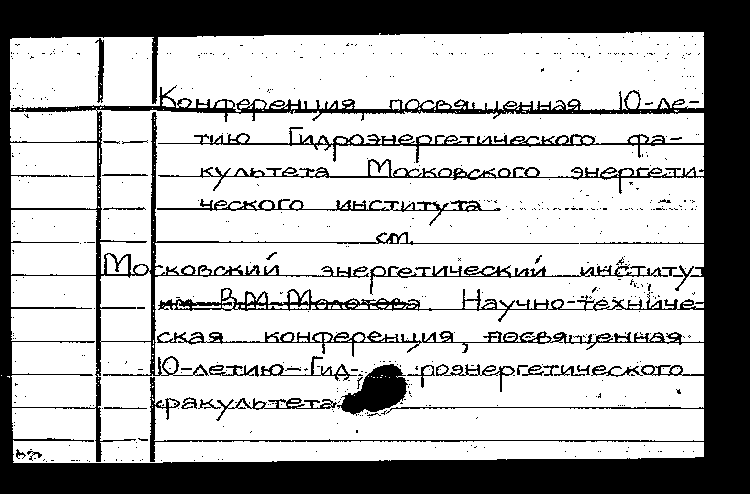 Конференция, посвященная 10-ле-
тию Гидроэнергетического фа-
культета Московского энергети-
ческого института.
см.
Московский энергетический институт
им. В.М. Молотова. Научно-техниче-
ская конференция, посвященная
10-летию Гид- роэнергетического
факультета